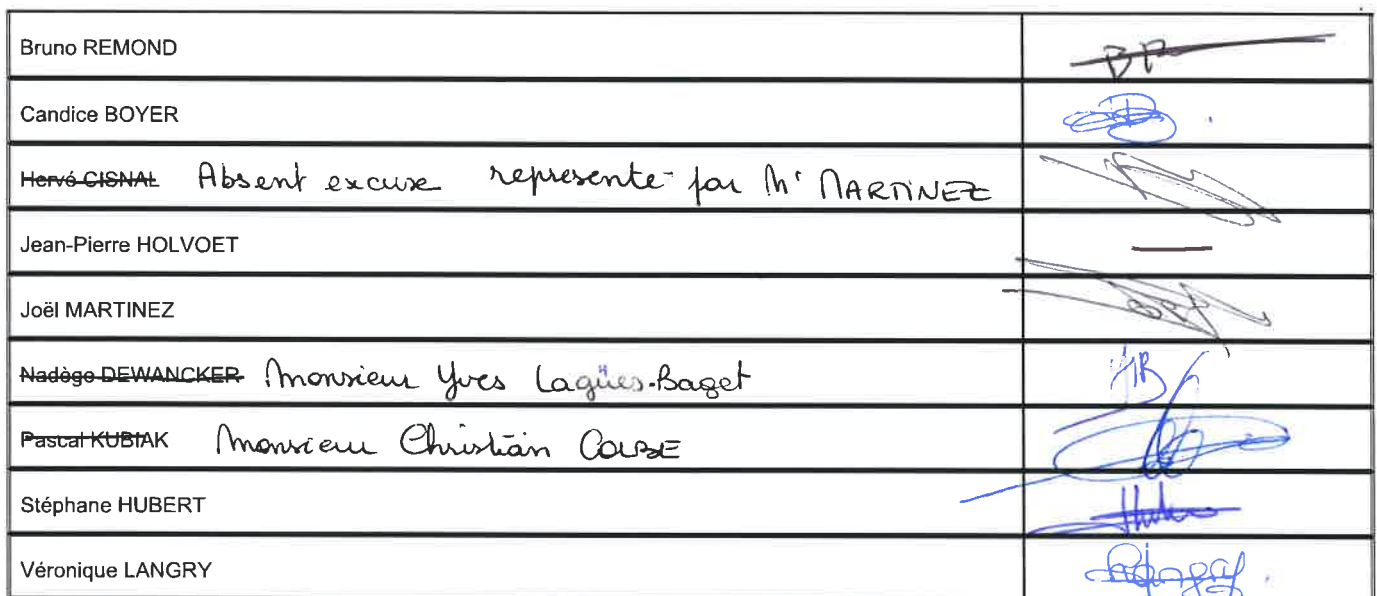 Bruno REMOND BR
Candice BOYER
Hervé CISNAL Absent excuse represente par Mr MARTINEZ
Jean-Pierre HOLVOET
Joël MARTINEZ
Nadège DEWANCKER Monsieur Yves Lagües-Baget
Pascal KUBIAK Monsieur Christian
Stéphane HUBERT
Véronique LANGRY